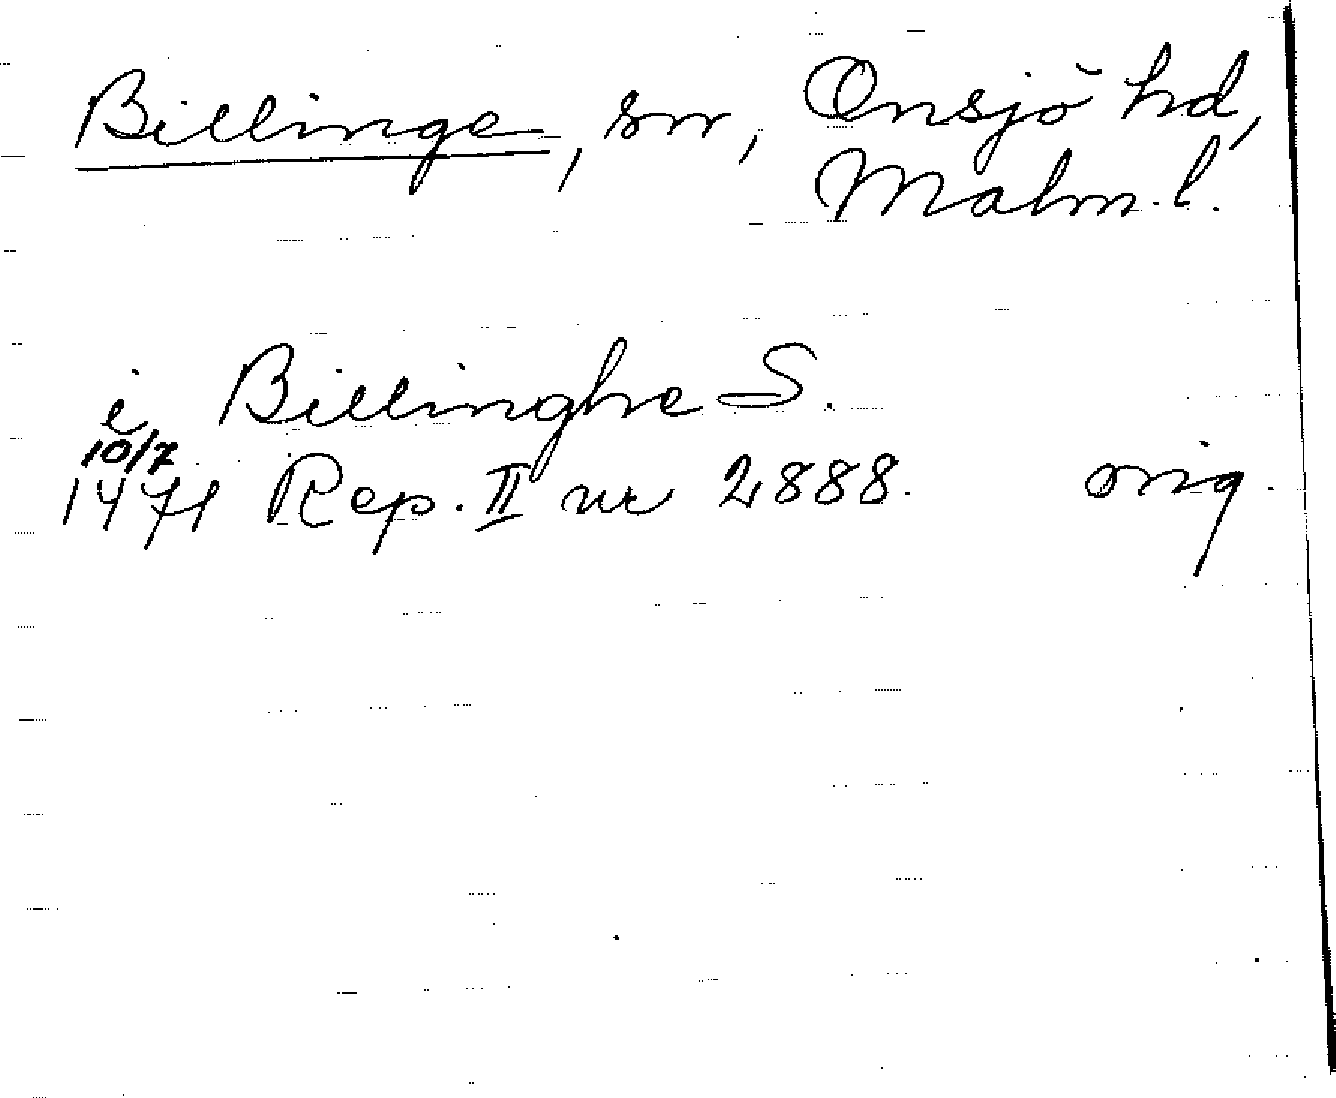 Billinge, sn, Onsjö hd,
Malm.l.
i Billinghe S.
10/7
1471 Rep. II nr 2888. orig.